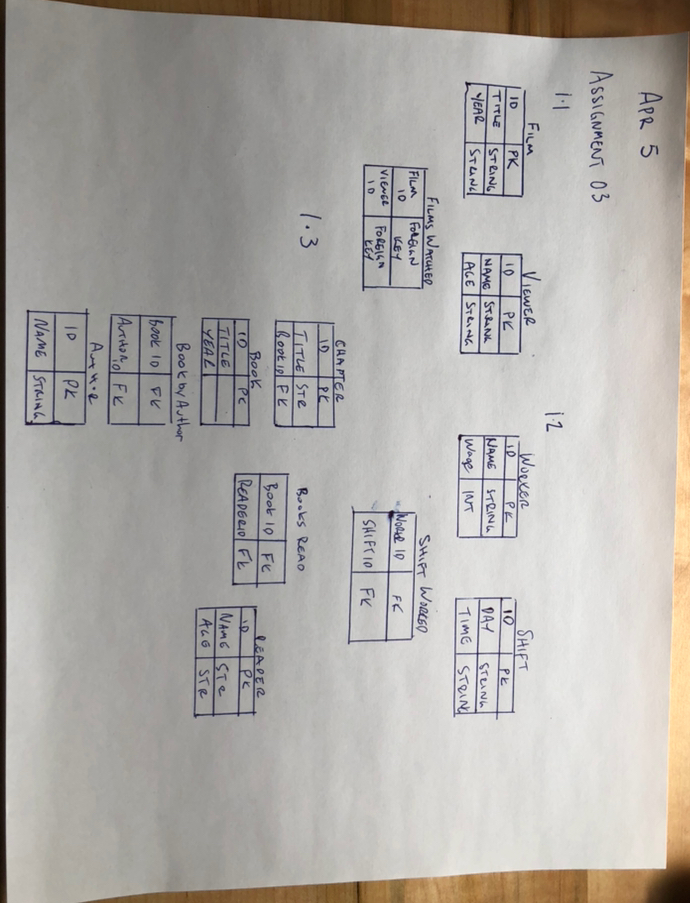 APR 5
ASSIGNMENT 03
1.1
FILM
ID PK
TITLE STRING
YEAR STRING
VIEWER
ID PK
NAME STRING
AGE STRING
FILMS WATCHED
FILM ID FOREIGN KEY
VIEWER ID FOREIGN KEY
1.2
WORKER
ID PK
NAME STRING
Wage INT
SHIFT
ID PK
DAY STRING
TIME STRING
SHIFT WORKED
WORKER ID FK
SHIFT ID FK
1.3
CHAPTER
ID PK
TITLE STR
BOOK ID FK
BOOK
ID PK
TITLE
YEAR
Book by Author
BOOK ID FK
AUTHOR ID FK
AUTHOR
ID PK
NAME STRING
BOOKS READ
BOOK ID FK
READER ID FK
READER
ID PK
NAME STR
AGE STR